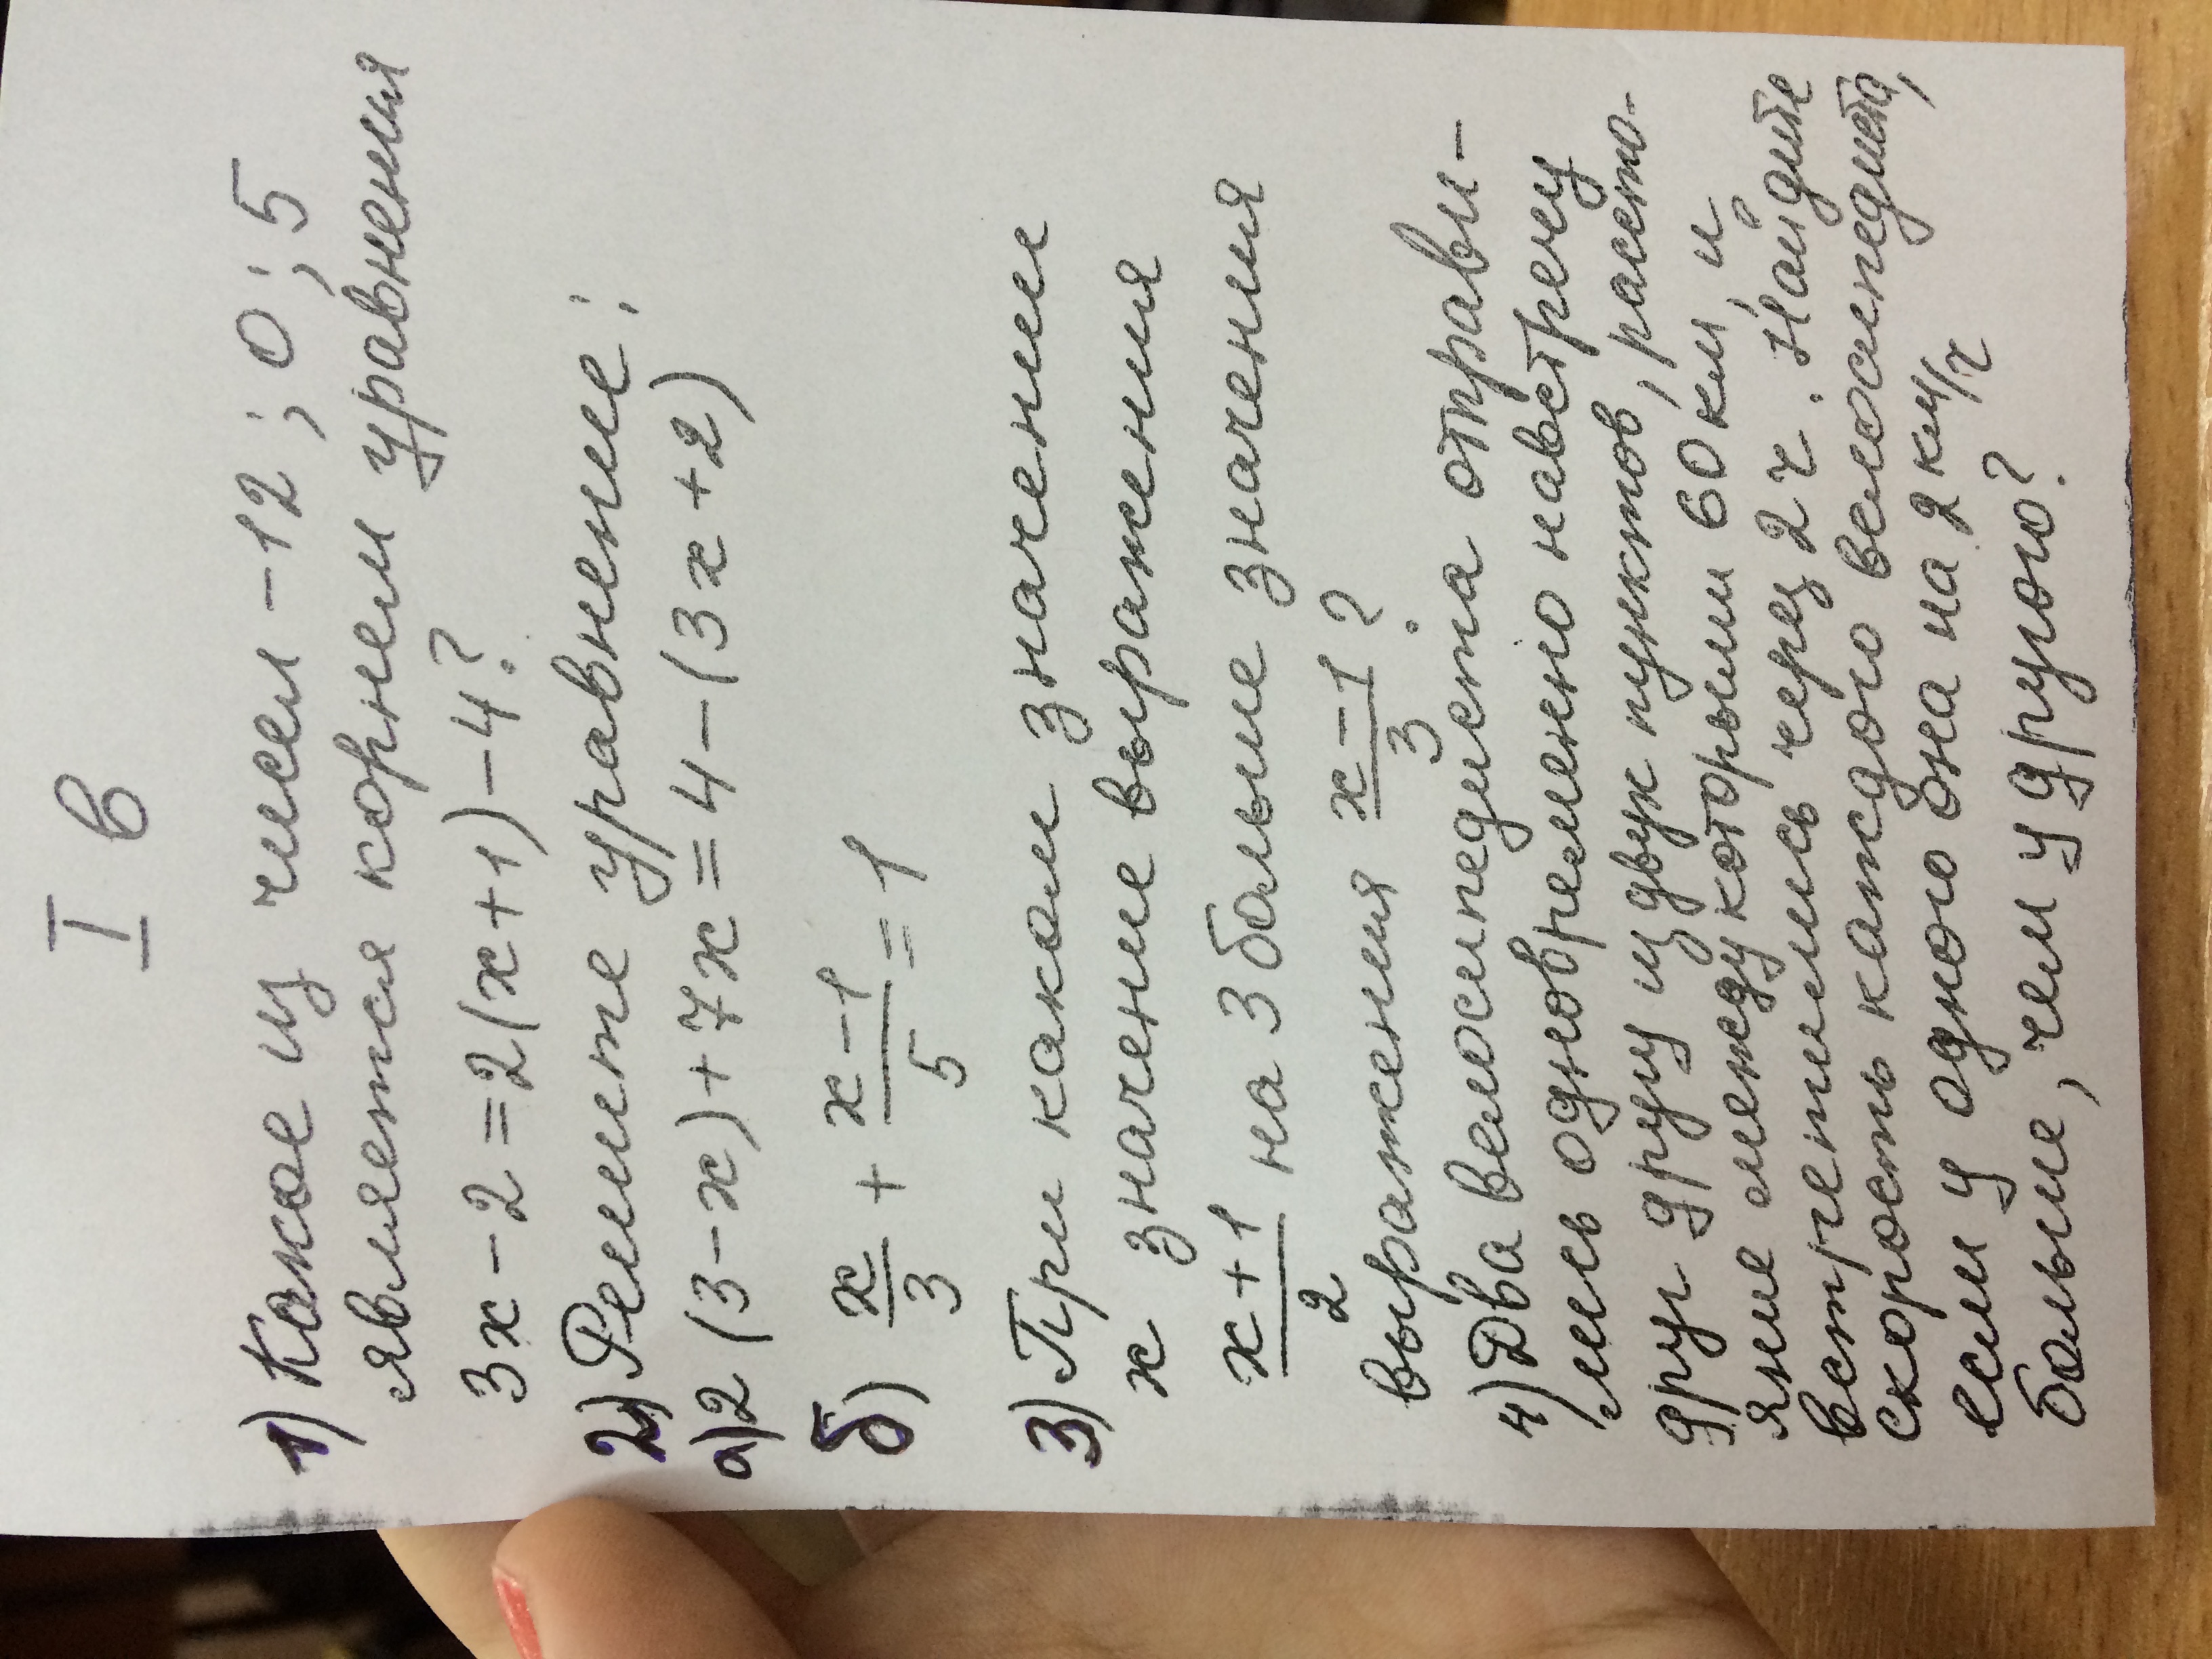 I в
1) Какое из чисел -12; 0; 5
является корнем уравнения
3x - 2 = 2(x+1) - 4?
2) Решите уравнение:
а) 2 (3 - x) + 7x = 4 - (3x + 2)
б) x/3 + (x-1)/5 = 1
3) При каком значении
x значение выражения
(x+1)/2 на 3 больше значения
выражения (x-1)/3 ?
4) Два велосипедиста отправи-
лись одновременно навстречу
друг другу из двух пунктов, рассто-
яние между которыми 60 км, и
встретились через 2 ч. Найдите
скорость каждого велосипедиста,
если у одного она на 2 км/ч
больше, чем у другого?